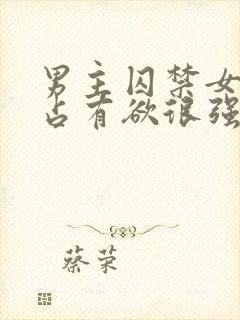 男主囚禁女
占有欲很强
蔡荣